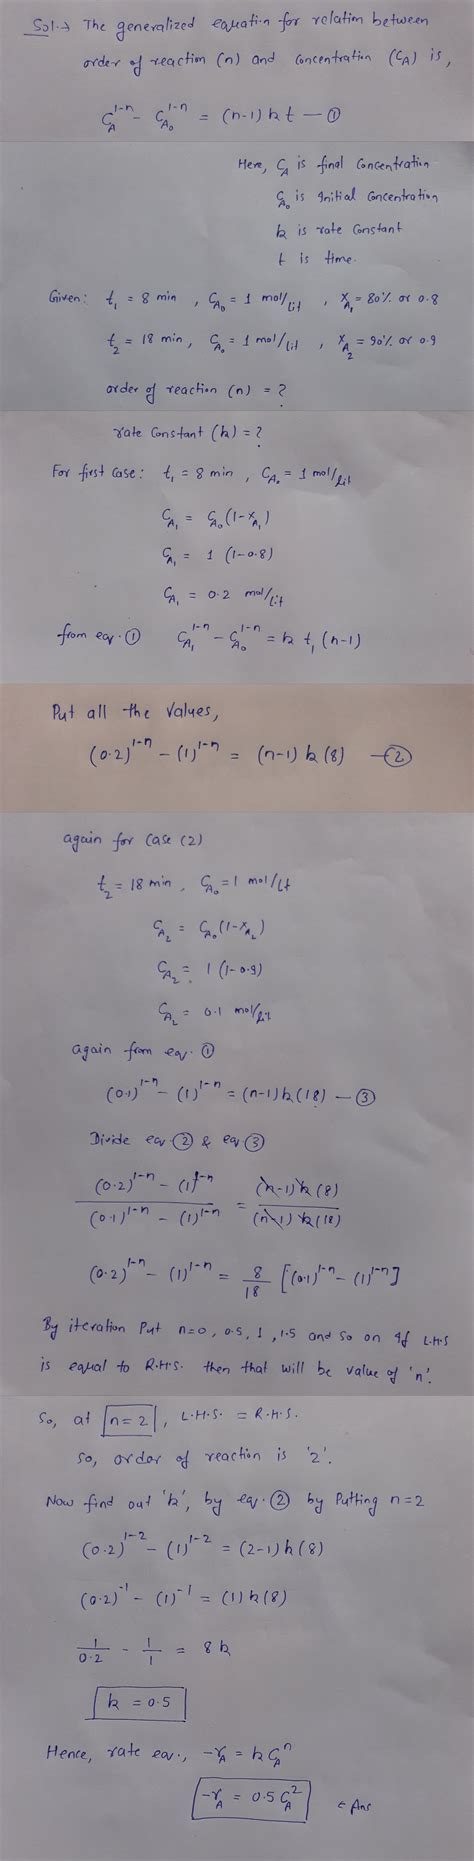 Sol.→ The generalized equation for relation between
order of reaction (n) and concentration (C_A) is,
C_A^{1-n} - C_{A_0}^{1-n} = (n-1) k t — ①
Here, C_A is final concentration
C_{A_0} is Initial concentration
k is rate constant
t is time.
Given: t_1 = 8 min , C_{A_0} = 1 mol/lit , X_{A_1} = 80% or 0.8
t_2 = 18 min, C_{A_0} = 1 mol/lit , X_{A_2} = 90% or 0.9
order of reaction (n) = ?
rate constant (k) = ?
For first case: t_1 = 8 min , C_{A_0} = 1 mol/lit
C_{A_1} = C_{A_0} (1-X_{A_1})
C_{A_1} = 1 (1-0.8)
C_{A_1} = 0.2 mol/lit
from eq. ① C_{A_1}^{1-n} - C_{A_0}^{1-n} = k t_1 (n-1)
Put all the values,
(0.2)^{1-n} - (1)^{1-n} = (n-1) k (8) — ②
again for case (2)
t_2 = 18 min , C_{A_0} = 1 mol/lt
C_{A_2} = C_{A_0} (1-X_{A_2})
C_{A_2} = 1 (1-0.9)
C_{A_2} = 0.1 mol/lit
again from eq. ①
(0.1)^{1-n} - (1)^{1-n} = (n-1) k (18) — ③
Divide eq. ② & eq ③
(0.2)^{1-n} - (1)^{1-n} / (0.1)^{1-n} - (1)^{1-n} = (n-1) k (8) / (n-1) k (18)
(0.2)^{1-n} - (1)^{1-n} = 8/18 [(0.1)^{1-n} - (1)^{1-n}]
By iteration Put n=0, 0.5, 1, 1.5 and so on If L.H.S
is equal to R.H.S. then that will be value of 'n'.
So, at n=2 , L.H.S. = R.H.S.
So, order of reaction is '2'.
Now find out 'k', by eq. ② by Putting n=2
(0.2)^{1-2} - (1)^{1-2} = (2-1) k (8)
(0.2)^{-1} - (1)^{-1} = (1) k (8)
1/0.2 - 1/1 = 8k
k = 0.5
Hence, rate eq., -r_A = k C_A^n
-r_A = 0.5 C_A^2 ← Ans